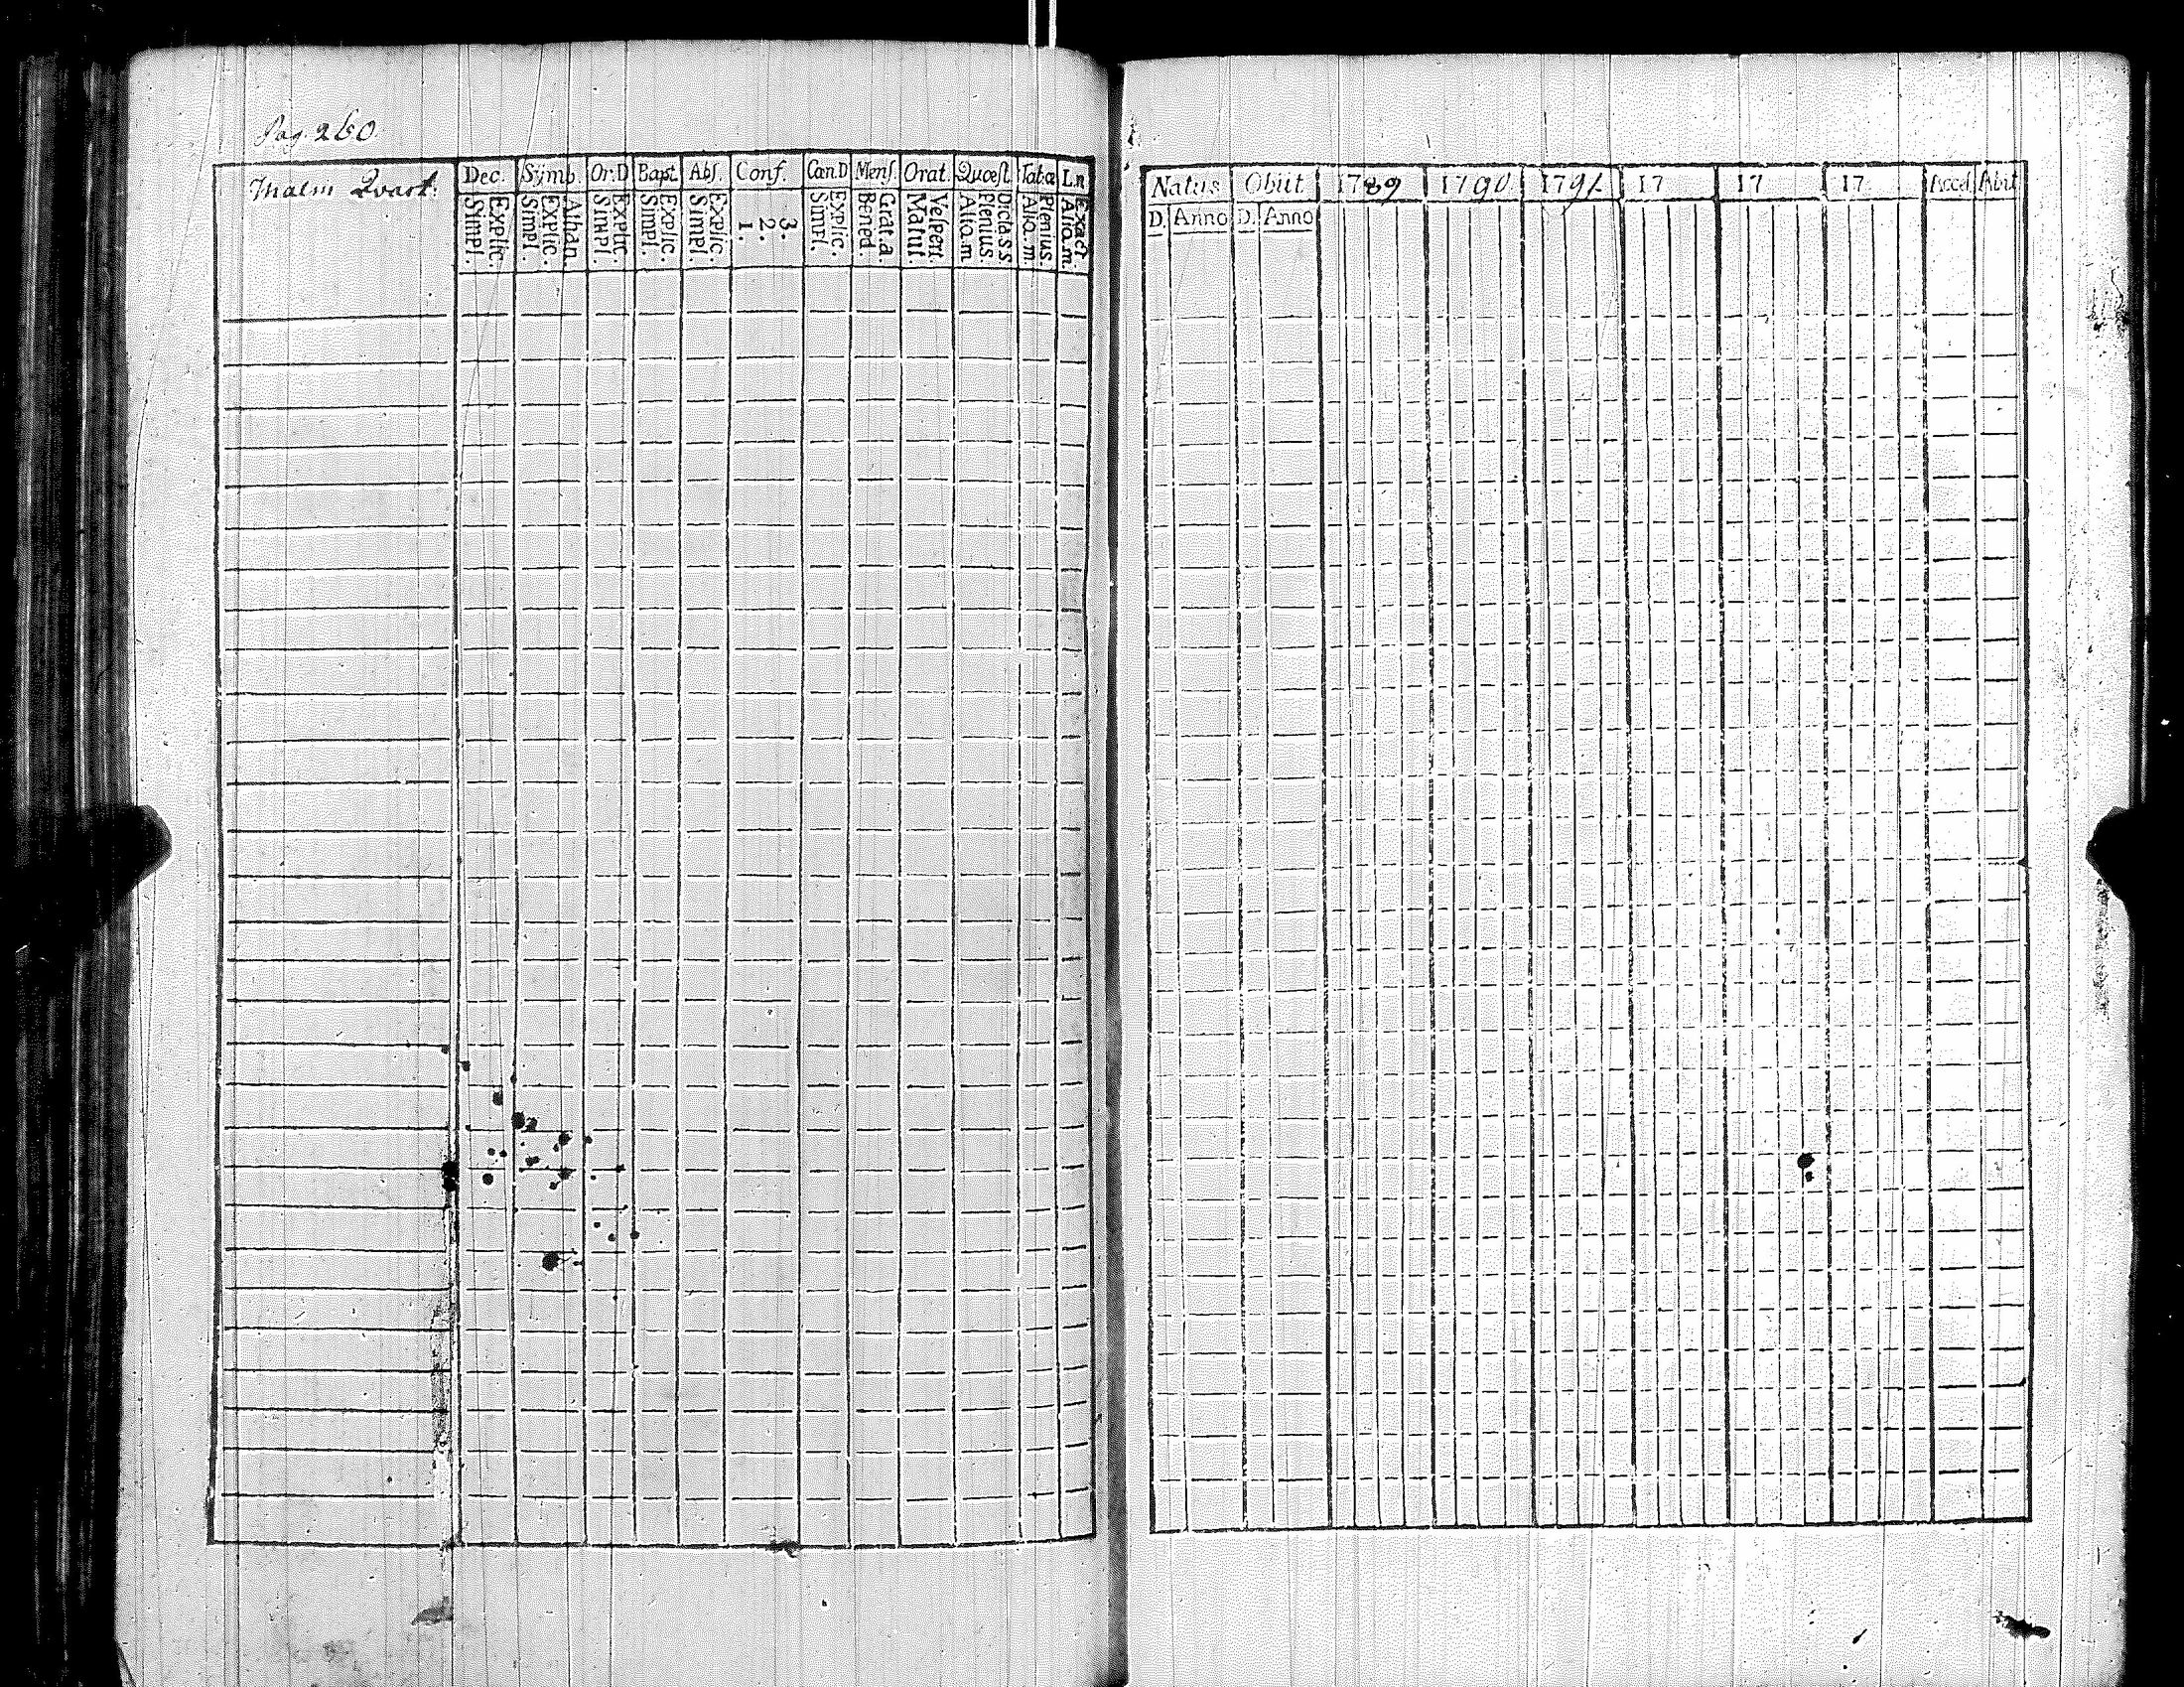 Pag. 260
Malm Qvart.
Dec. Symb. Or.D Bapt. Abs. Conf. Can.D Mens. Orat. Quæst. Tabæ L.n
Explic. Simpl. Athan. Explic. Simpl. Explic. Simpl. Explic. Simpl. Explic. Simpl. 3. 2. 1. Explic. Simpl. Grat.a. Bened. Vesper. Matut. Ordass Plenius. Aliq.m Plenius. Aliq.m. Exact. Aliq.m.
Natus Obiit 1789 1790 1791 17 17 17 Acced. Abiit
D. Anno D. Anno